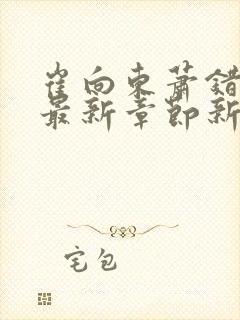 崔向东萧错
最新章节新
宅包